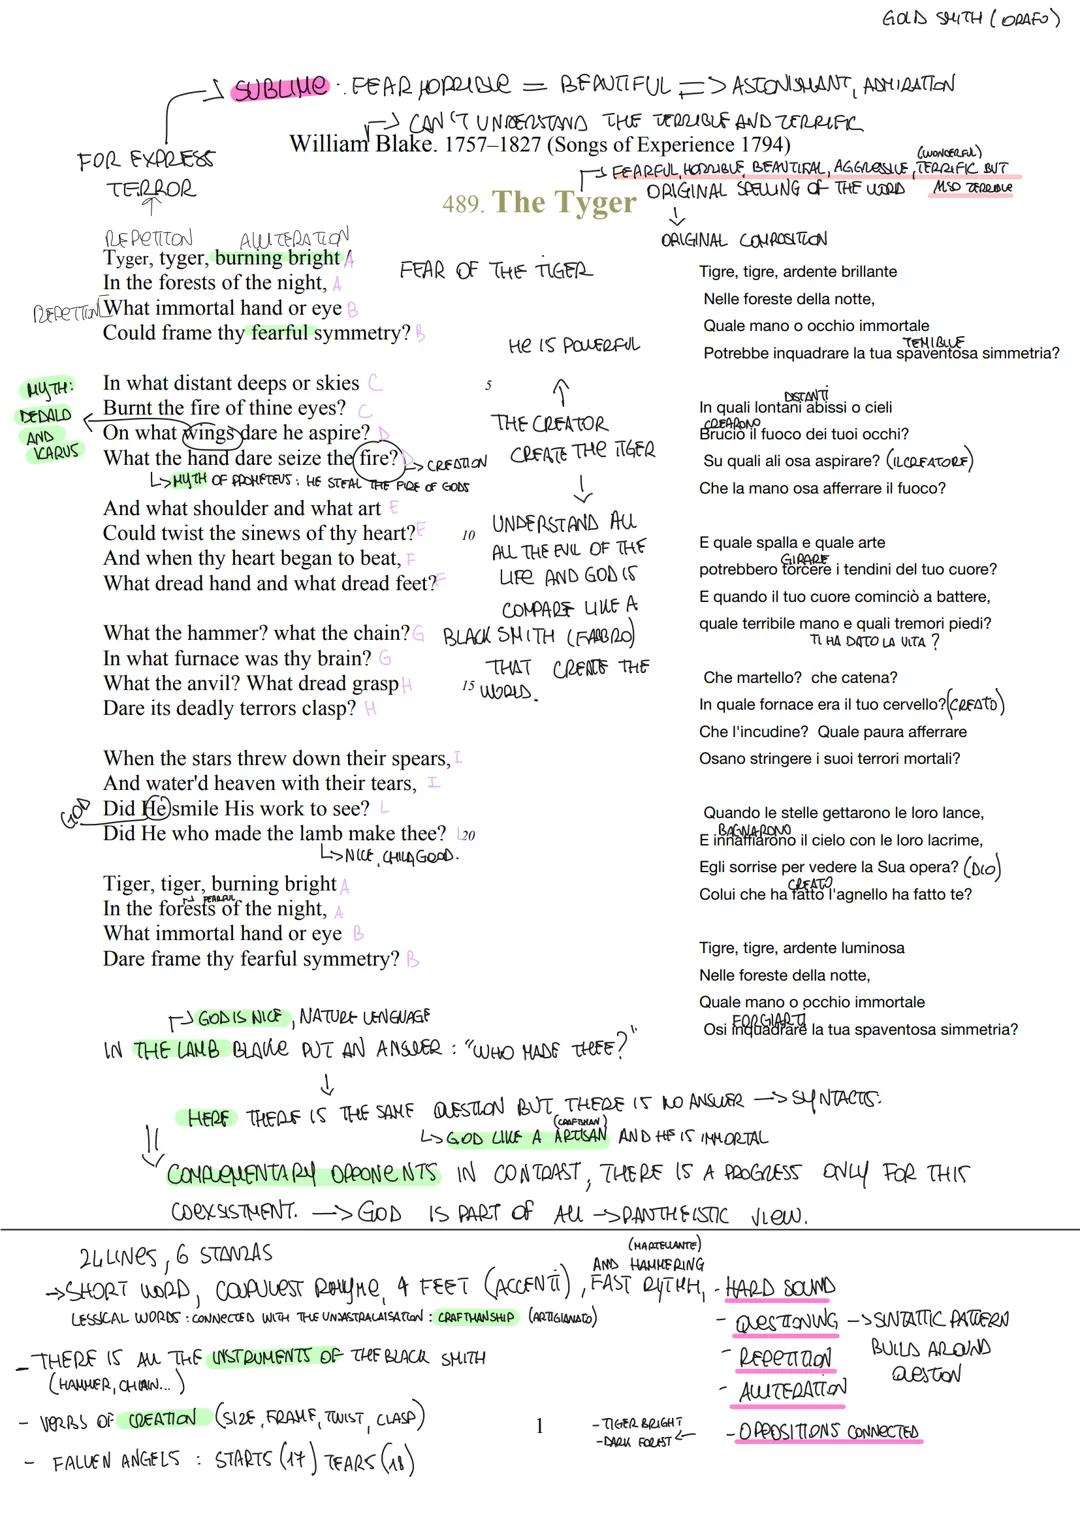 GOLD SMITH (ORAFO)
SUBLIME : FEAR HORRIBLE = BEAUTIFUL => ASTONISHMANT, ADMIRATION
CAN'T UNDERSTAND THE TERRIBLE AND TERRIFIC
William Blake. 1757–1827 (Songs of Experience 1794)
FOR EXPRESS
TERROR
(WONDERFUL)
FEARFUL, HORRIBLE, BEAUTIFUL, AGGRESSIVE, TERRIFIC BUT
ALSO TERRIBLE
489. The Tyger
ORIGINAL SPELLING OF THE WORD
ORIGINAL COMPOSITION
REPETITION ALLITERATION
Tyger, tyger, burning bright A
In the forests of the night, A
REPETITION What immortal hand or eye B
Could frame thy fearful symmetry? B
FEAR OF THE TIGER
In what distant deeps or skies C 5
Burnt the fire of thine eyes? C
On what wings dare he aspire? D
What the hand dare seize the fire? D -> CREATION
MYTH:
DEDALO
AND
ICARUS
-> MYTH OF PROMETEUS : HE STEAL THE FIRE OF GODS
And what shoulder and what art E
Could twist the sinews of thy heart? E 10
And when thy heart began to beat, F
What dread hand and what dread feet? F
What the hammer? what the chain? G
In what furnace was thy brain? G
What the anvil? What dread grasp H 15
Dare its deadly terrors clasp? H
When the stars threw down their spears, I
And water'd heaven with their tears, I
GOD Did He smile His work to see? L
Did He who made the lamb make thee? L 20
-> NICE, CHILD, GOOD.
Tiger, tiger, burning bright A
In the forests of the night, A
FEARFUL
What immortal hand or eye B
Dare frame thy fearful symmetry? B
HE IS POWERFUL
THE CREATOR
CREATE THE TIGER
UNDERSTAND ALL
ALL THE EVIL OF THE
LIFE AND GOD IS
COMPARE LIKE A
BLACK SMITH (FABBRO)
THAT CREATE THE
WORLD.
Tigre, tigre, ardente brillante
Nelle foreste della notte,
Quale mano o occhio immortale
TEMIBILE
Potrebbe inquadrare la tua spaventosa simmetria?
DISTANTI
In quali lontani abissi o cieli
CREARONO
Bruciò il fuoco dei tuoi occhi?
Su quali ali osa aspirare? (IL CREATORE)
Che la mano osa afferrare il fuoco?
E quale spalla e quale arte
GIRARE
potrebbero torcere i tendini del tuo cuore?
E quando il tuo cuore cominciò a battere,
quale terribile mano e quali tremori piedi?
TI HA DATO LA VITA ?
Che martello? che catena?
In quale fornace era il tuo cervello? (CREATO)
Che l'incudine? Quale paura afferrare
Osano stringere i suoi terrori mortali?
Quando le stelle gettarono le loro lance,
BAGNARONO
E innaffiarono il cielo con le loro lacrime,
Egli sorrise per vedere la Sua opera? (DIO)
CREATO
Colui che ha fatto l'agnello ha fatto te?
Tigre, tigre, ardente luminosa
Nelle foreste della notte,
Quale mano o occhio immortale
FORGIARTI
Osi inquadrare la tua spaventosa simmetria?
GOD IS NICE, NATURE LENGUAGE
IN THE LAMB BLAKE PUT AN ANSWER : "WHO MADE THEE?"
HERE THERE IS THE SAME QUESTION BUT THERE IS NO ANSWER -> SYNTACTIS.
(CRAFTMAN)
-> GOD LIKE A ARTISAN AND HE IS IMMORTAL
COMPLEMENTARY OPPONENTS IN CONTRAST, THERE IS A PROGRESS ONLY FOR THIS
COEXSISTMENT. -> GOD IS PART OF ALL -> PANTHEISTIC VIEW.
24 LINES, 6 STANZAS
(MARTELLANTE)
AND HAMMERING
-> SHORT WORD, COUPLEST RHYME, 4 FEET (ACCENTI), FAST RYTHM,
LESSICAL WORDS : CONNECTED WITH THE UNDASTRALAISATION : CRAFTMANSHIP (ARTIGIANATO)
- THERE IS ALL THE INSTRUMENTS OF THE BLACK SMITH
(HAMMER, CHAIN...)
- VERBS OF CREATION (SIZE, FRAME, TWIST, CLASP)
- FALLEN ANGELS : STARTS (17) TEARS (18)
- HARD SOUND
- QUESTIONING -> SINTATTIC PATTERN
BUILD AROUND
QUESTION
- REPETITION
- ALLITERATION
- OPPOSITIONS CONNECTED
- TIGER BRIGHT
- DARK FOREST
1